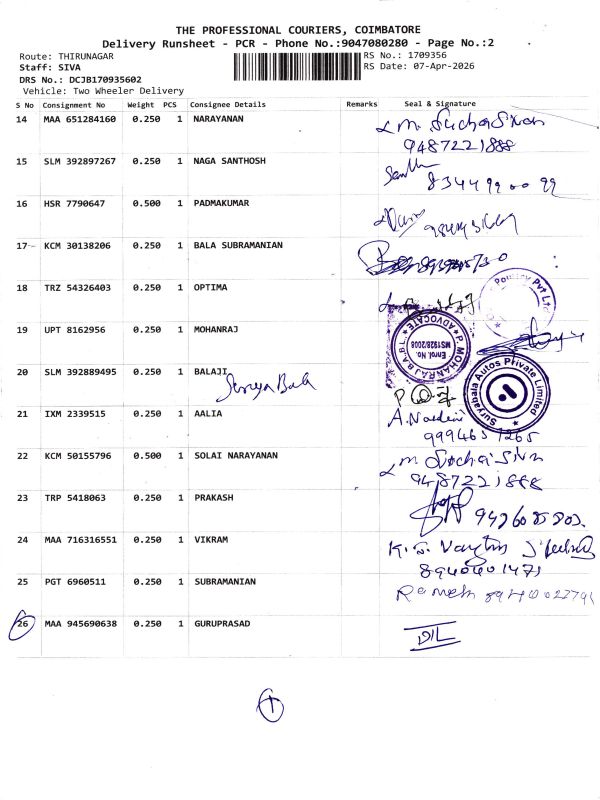 THE PROFESSIONAL COURIERS, COIMBATORE
Delivery Runsheet - PCR - Phone No.:9047080280 - Page No.:2
Route: THIRUNAGAR RS No.: 1709356
Staff: SIVA RS Date: 07-Apr-2026
DRS No.: DCJB170935602
Vehicle: Two Wheeler Delivery
S No Consignment No Weight PCS Consignee Details Remarks Seal & Signature
14 MAA 651284160 0.250 1 NARAYANAN
9487221888
15 SLM 392897267 0.250 1 NAGA SANTHOSH
8344990099
16 HSR 7790647 0.500 1 PADMAKUMAR
17 KCM 30138206 0.250 1 BALA SUBRAMANIAN
18 TRZ 54326403 0.250 1 OPTIMA
Poultry Pvt Ltd
19 UPT 8162956 0.250 1 MOHANRAJ
P. MOHANRAJ B.A.B.L.
ADVOCATE
Enrol No.
MS1928/2008
20 SLM 392889495 0.250 1 BALAJI
Surya Bala
Suryabala Autos Private Limited
21 IXM 2339515 0.250 1 AALIA
22 KCM 50155796 0.500 1 SOLAI NARAYANAN
9487221888
23 TRP 5418063 0.250 1 PRAKASH
24 MAA 716316551 0.250 1 VIKRAM
25 PGT 6960511 0.250 1 SUBRAMANIAN
Ramesh
26 MAA 945690638 0.250 1 GURUPRASAD
D/L
1